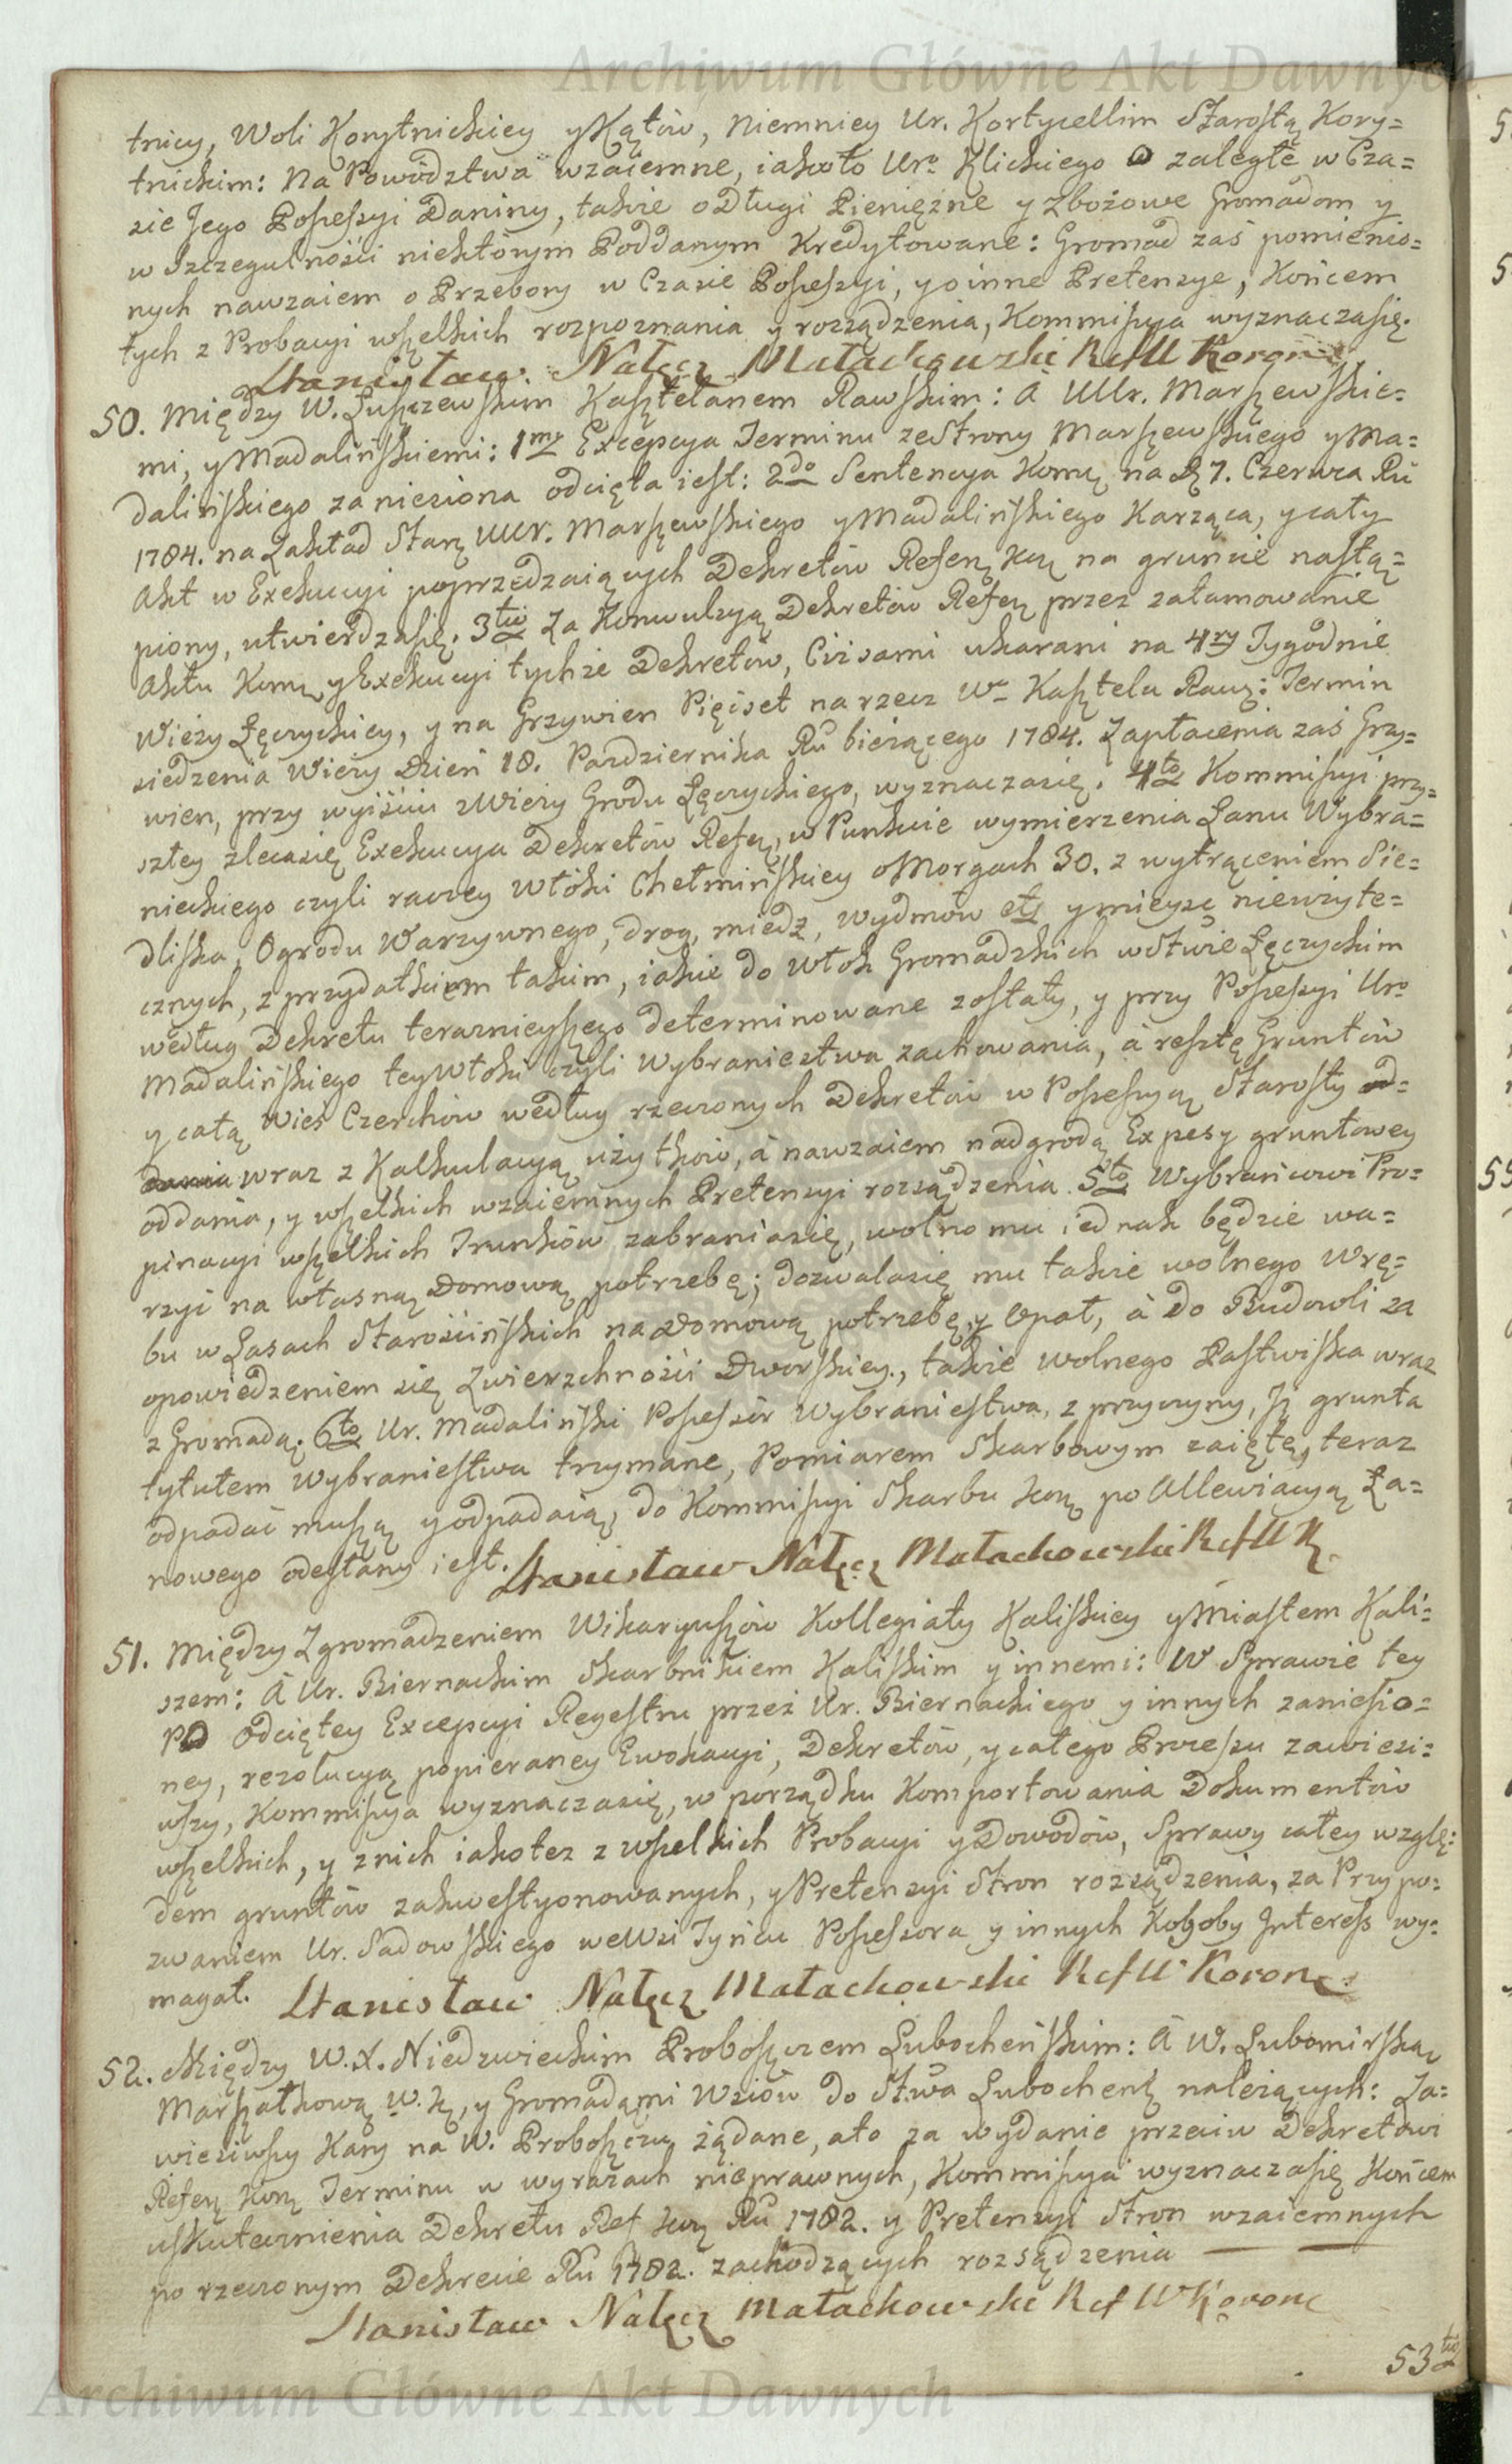 Archiwum Główne Akt Dawnych
tnicy, Woli Korytnickiey y Kątów, Niemniey Ur. Kortycellim Starostą Kory=
tnickim: Na Powództwa wzaiemne, iakoto Urō Klickiego o zaległe w Cza=
sie Jego Possessyi Daniny, także o Długi Pieniężne y Zbożowe Gromadom y
w szczegulności niektórym Poddanym Kredytowane: Gromad zaś pomienio=
nych nawzaiem o Przebory w Czasie Possessyi, y o inne Pretensye, Końcem
tych z Probacyi wszelkich rozpoznania y rozządzenia, Kommissya wyznacza się.
Stanisław Nałęcz Małachowski RefW Koronny
50. Między W. Łuszczewskim Kasztelanem Rawskim: A UUr. Marszewskie=
mi, y Madalińskiemi: 1mo Excepcya Terminu ze Strony Marszewskiego y Ma=
dalińskiego zaniesiona odcięta iest: 2do Sentencya Komą na D 7. Czerwca Ru
1784. na Zakład Starą UUr. Marszewskiego y Madalińskiego Karząca, y cały
Akt w Exekucyi poprzedzaiących Dekretów Refer Kor na gruncie nastą=
piony, utwierdza się. 3tio Za Konwulsyą Dekretów Refer przez zatamowanie
Aktu Kom y Exekucyi tychże Dekretów, Ciż sami ukarani na 4ry Tygodnie
Wieży Łęczyckiey, y na Grzywien Pięćset na rzecz Wo Kasztela Raw: Termin
siedzenia Wieży Dzień 18. Pazdziernika Ru bieżącego 1784. Zapłacenia zaś Grzy=
wien, przy wyiściu z Wieży Grodu Łęczyckiego, wyznacza się. 4to Kommissyi przy=
szłey zleca się Exekucya Dekretów Refer, w Punkcie wymierzenia Łanu Wybra=
nieckiego czyli raczey Włóki Chełmińskiey o Morgach 30. z wytrąceniem Sie=
dliska, Ogrodu Warzywnego, drog, miedz, wydmow etc y mieysc nieużyte=
cznych, z przydatkiem takim, iakie do włok Gromadzkich w Stwie Łęczyckim
według Dekretu teraznieyszego determinowane zostały, y przy Possessyi Uro
Madalińskiego tey Włoki czyli Wybraniectwa zachowania, á resztę Gruntów
y całą Wieś Czerchów według rzeczonych Dekretów w Possessyą Starosty od=
dania wraz z Kalkulacyą użytków, á nawzaiem nadgrodą Expesy gruntowey
oddania, y wszelkich wzaiemnych Pretensyi rozsądzenia. 5to Wybrańcowi Pro=
pinacyi wszelkich Trunków zabrania się, wolno mu iednak będzie wa=
rzyć na własną Domową potrzebę; dozwala się mu takie wolnego Wrę=
bu w Lasach Starościńskich na Domową potrzebę, y Opał, á do Budowli za
opowiedzeniem się Zwierzchności Dworskiey, takie wolnego Pastwiska wraz
z Gromadą. 6to Ur. Madaliński Possessor Wybraniestwa, z przyczyny, Iż grunta
tytułem Wybraniestwa trzymane, Pomiarem Skarbowym zaięte, teraz
odpadać muszą y odpadaią, do Kommissyi Skarbu Kor po Allewiacyą Ła=
nowego odesłany iest. Stanisław Nałęcz Małachowski RefW K
51. Między Zgromadzeniem Wikaryuszów Kollegiaty Kaliskiey y Miastem Kali=
szem: A Ur. Biernackim Skarbnikiem Kaliskim y innemi: W Sprawie tey
po odciętey Excepcyi Regestru przez Ur. Biernackiego y innych zaniesio=
ney, rezolucyą popieraney Ewokacyi, Dekretów, y całego Processu zawiesi=
wszy, Kommissya wyznacza się, w porządku Komportowania Dokumentów
wszelkich, y z nich iakotez z wszelkich Probacyi y Dowodów, Sprawy całey wzglę=
dem gruntów zakwestyonowanych, y Pretensyi Stron rozsądzenia, za Przypo=
zwaniem Ur. Sadowskiego we Wsi Tyńcu Possessora y innych Kogoby Interess wy=
magał. Stanisław Nałęcz Małachowski RefW Koronny
52. Między W. X. Niedzwieckim Proboszczem Lubocheńskim: A W. Lubomirską
Marszałkową W. K, y Gromadami Wsiów do Stwa Lubocheń należących: Za=
wiesiwszy Kary na W. Proboszczu żądane, a to za wydanie przeciw Dekretowi
Refer Kor Terminu w wyrazach nieprawnych, Kommissya wyznacza się Końcem
uskutecznienia Dekretu Ref Kor Ru 1782. y Pretensyi Stron wzaiemnych
po rzeczonym Dekrecie Ru 1782. zachodzących rozsądzenia
Stanisław Nałęcz Małachowski Ref W Koronny
53tio
Archiwum Główne Akt Dawnych